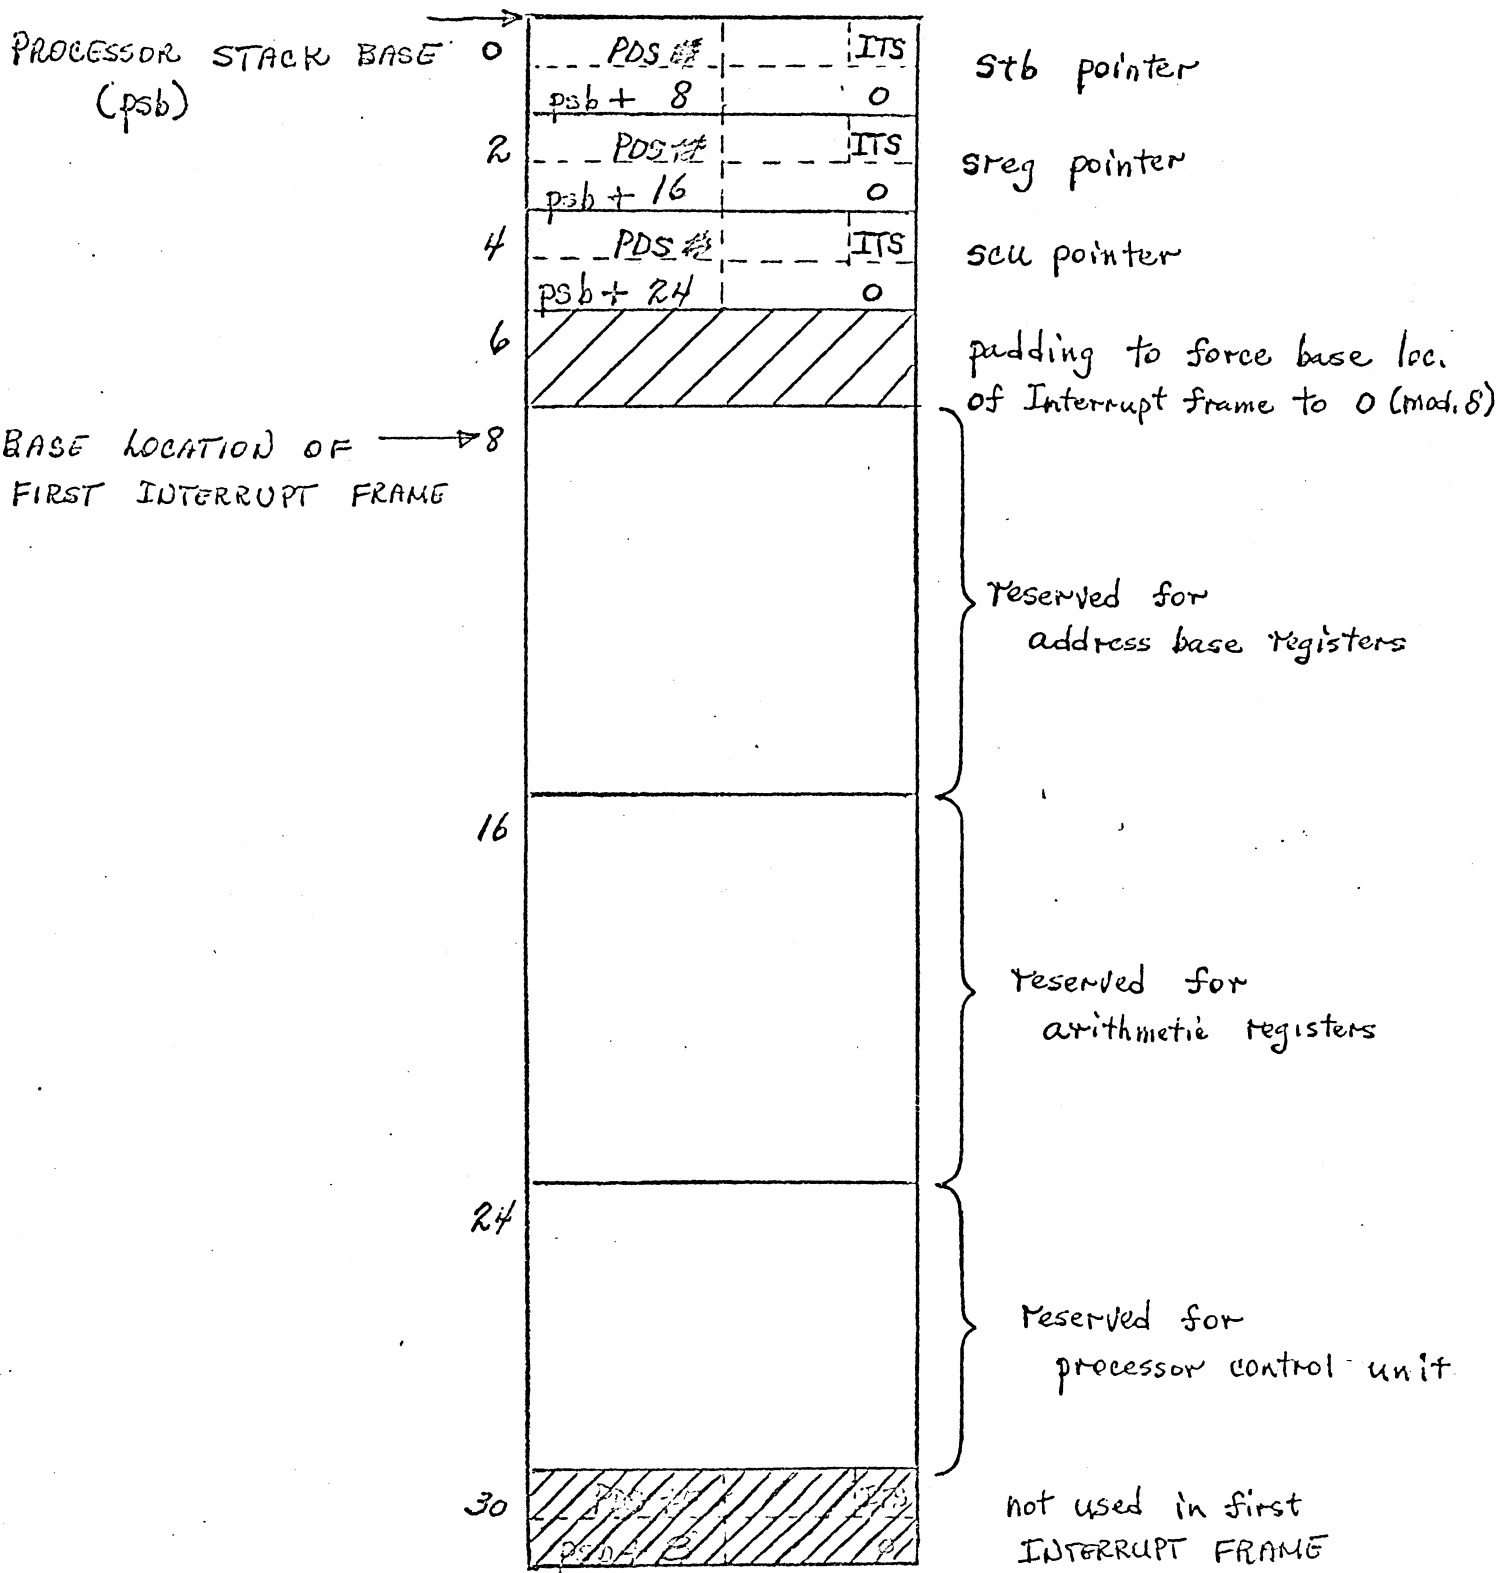 PROCESSOR STACK BASE 0 PDS # ITS stb pointer
(psb) psb + 8 0
2 PDS # ITS sreg pointer
psb + 16 0
4 PDS # ITS scu pointer
psb + 24 0
6 padding to force base loc.
of Interrupt frame to 0 (mod. 8)
BASE LOCATION OF 8
FIRST INTERRUPT FRAME
reserved for
address base registers
16
reserved for
arithmetic registers
24
reserved for
processor control unit
30 not used in first
INTERRUPT FRAME